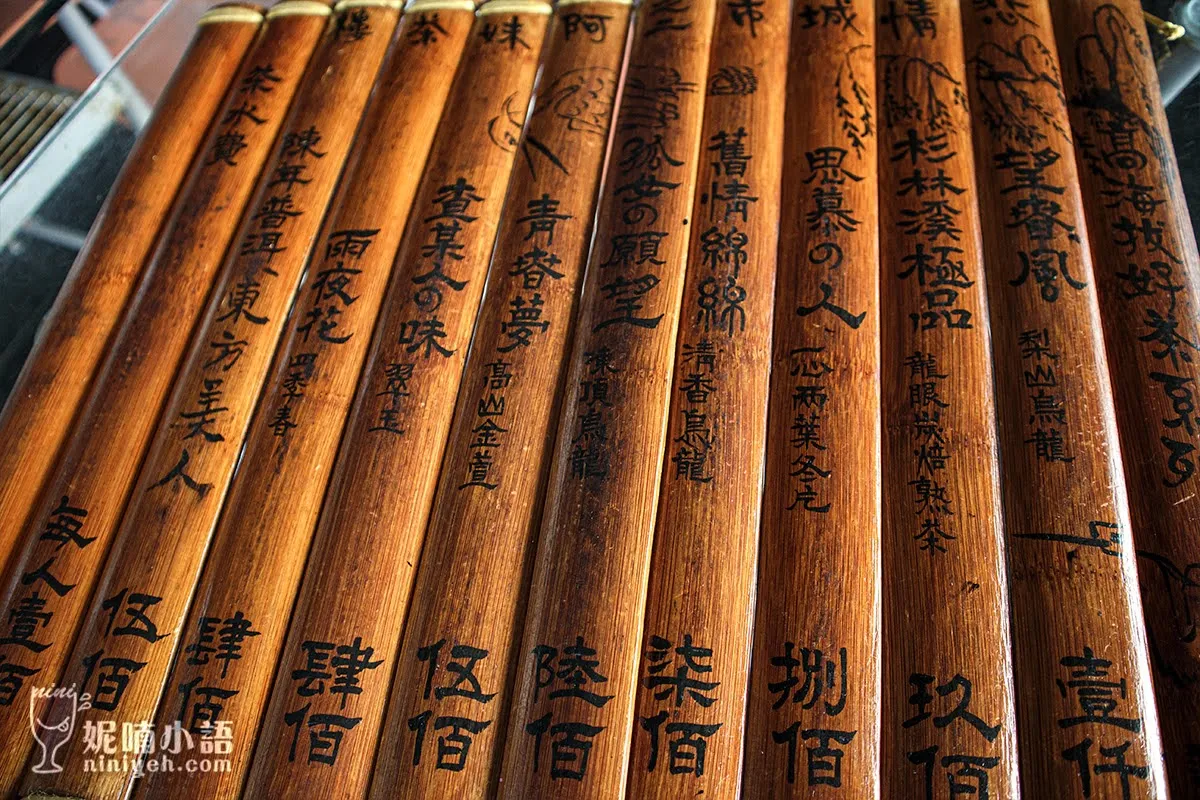 好茶系列
悲 望春風 梨山烏龍 壹仟
情 杉林溪極品 龍眼炭焙熟茶 玖佰
城 思慕の人 一心兩葉冬片 捌佰
市 舊情綿綿 清香烏龍 柒佰
之 孤女の願望 凍頂烏龍 陸佰
阿 青春夢 高山金萱 伍佰
妹 查某人の味 翠玉 肆佰
茶 雨夜花 四季春 肆佰
樓 陳年普洱、東方美人 伍佰
茶水費 每人壹佰
nini
妮喃小語
niniyeh.com